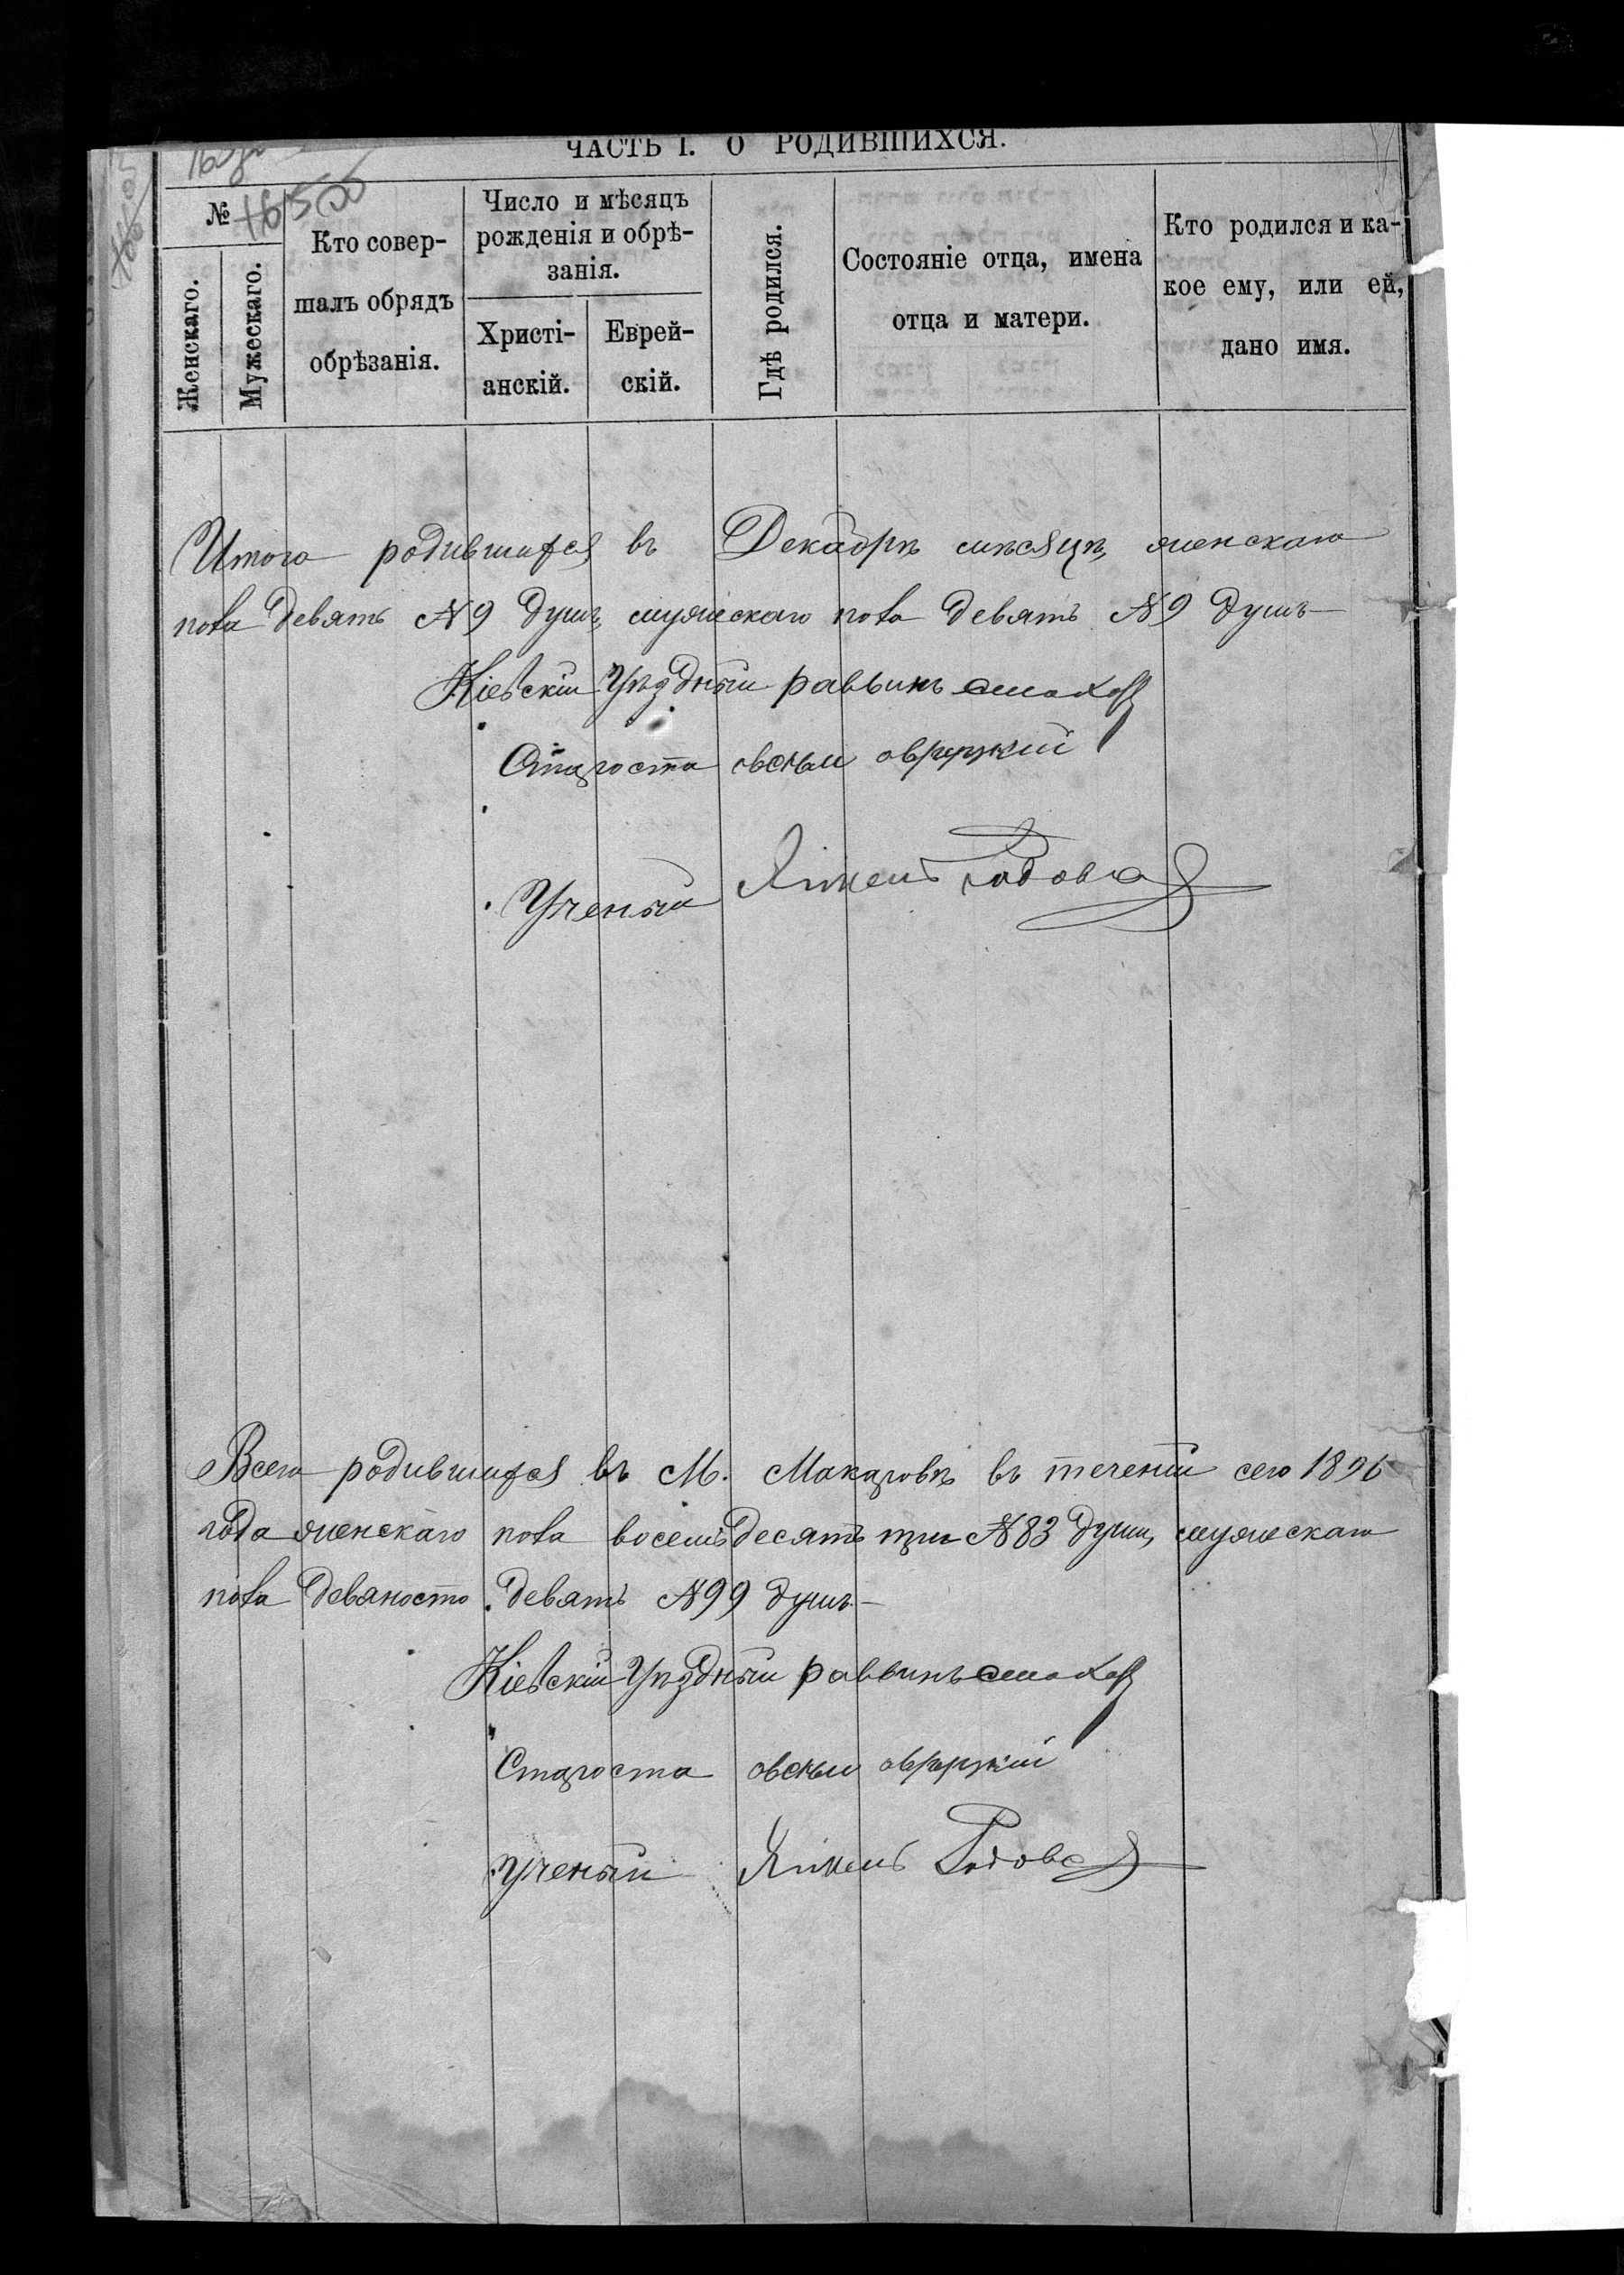 ЧАСТЬ I. О РОДИВШИХСЯ.
№
Женскаго.
Мужескаго.
Кто совер-
шалъ обрядъ
обрѣзанія.
Число и мѣсяцъ
рожденія и обрѣ-
занія.
Христі-
анскій.
Еврей-
скій.
Гдѣ родился.
Состояніе отца, имена
отца и матери.
Кто родился и ка-
кое ему, или ей,
дано имя.
Итого родившихся въ Декабрѣ мѣсяцѣ, женскаго
пола девять №9 душъ, мужескаго пола девять №9 душъ
Кіевскій Уѣздный раввинъ
Староста
Ученый
Всего родившихся въ М. Макаровѣ въ теченіи сего 1896
года женскаго пола восемьдесятъ три №83 души, мужескаго
пола девяносто девять №99 душъ
Кіевскій Уѣздный раввинъ
Староста
Ученый